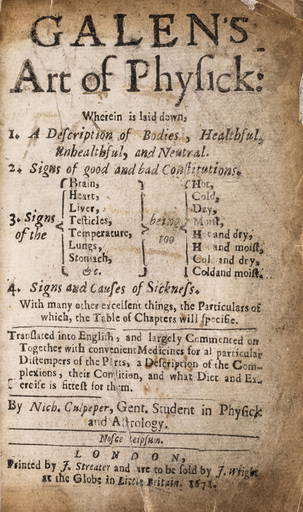 GALEN'S
Art of Phyſick:
Wherein is laid down,
1. A Deſcription of Bodies, Healthful,
Unhealthful, and Neutral.
2. Signs of good and bad Conſtitutions.
3. Signs of the
Brain,
Heart,
Liver,
Teſticles,
Temperature,
Lungs,
Stomach,
&c.
being too
Hot,
Cold,
Dry,
Moiſt,
Hot and dry,
H and moiſt,
Col and dry,
Cold and moiſt.
4. Signs and Cauſes of Sickneſs.
With many other excellent things, the Particulars of
which, the Table of Chapters will ſpecifie.
Tranſlated into Engliſh, and largely Commented on
Together with convenient Medicines for al particular
Diſtempers of the Parts, a Deſcription of the Com-
plexions, their Condition, and what Diet and Ex-
erciſe is fitteſt for them.
By Nich. Culpeper, Gent. Student in Phyſick
and Aſtrology.
Noſce teipſum.
LONDON,
Printed by J. Streater and are to be ſold by J. Wright
at the Globe in Little Britain. 1671.